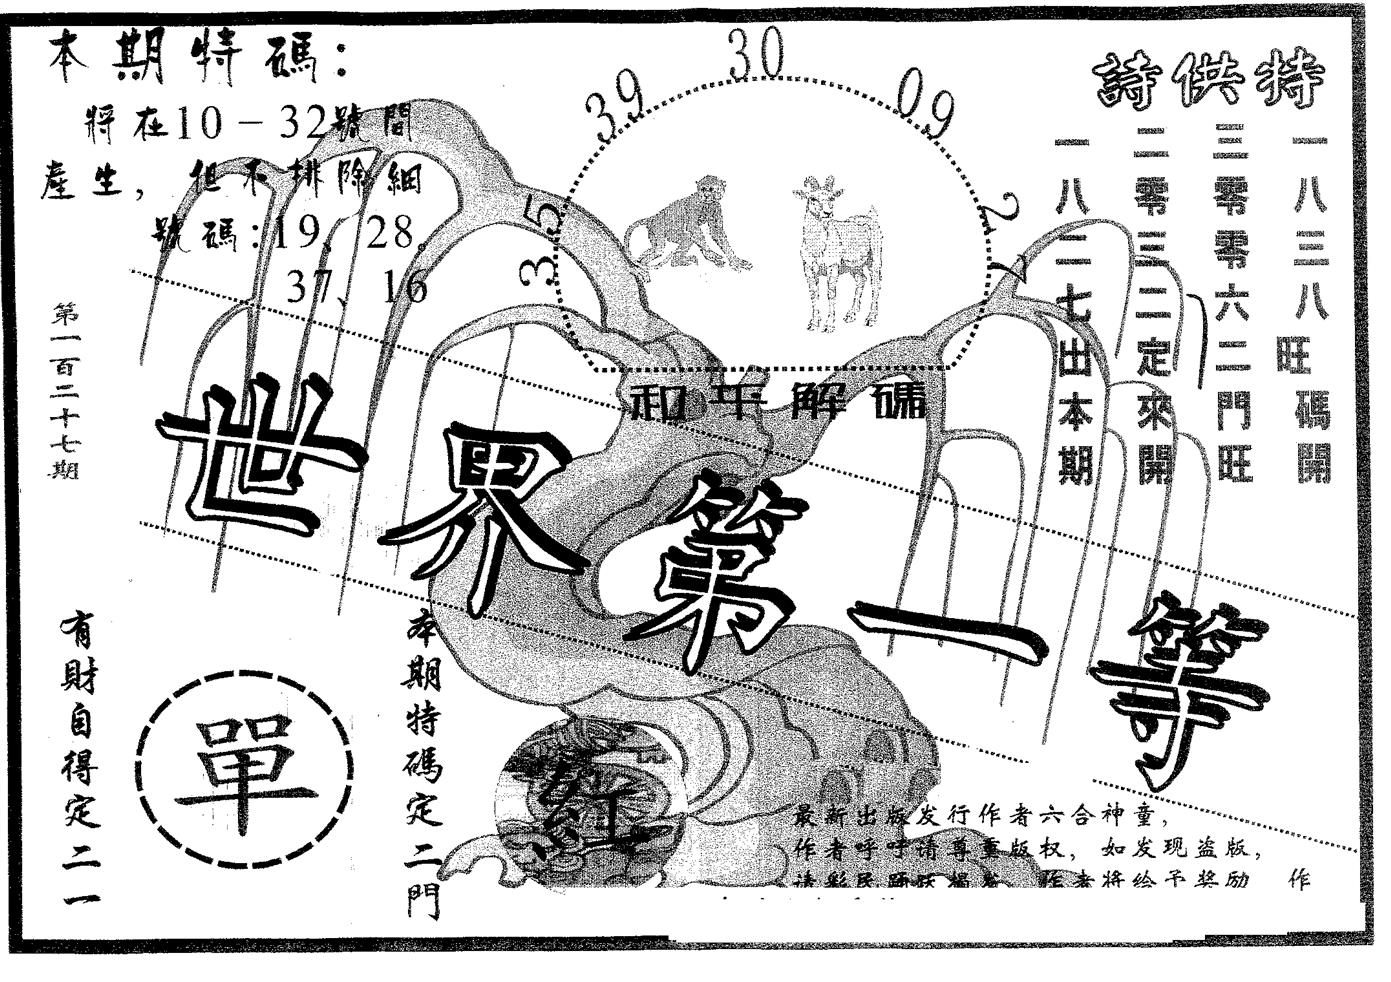 本期特碼：
將在10－32號間
產生，但不排除細
號碼：19、28。
37、16
39
30
09
35
27
詩供特
一八三八旺碼開
三零零六二門旺
二零三二定來開
一八二七出本期
和平解碼
第一百二十七期
世界第一等
有財自得定二一
單
本期特碼定二門
紅
最新出版发行作者六合神童，
作者呼吁请尊重版权，如发现盗版，
请彩民踊跃揭发 作者将给予奖励 作